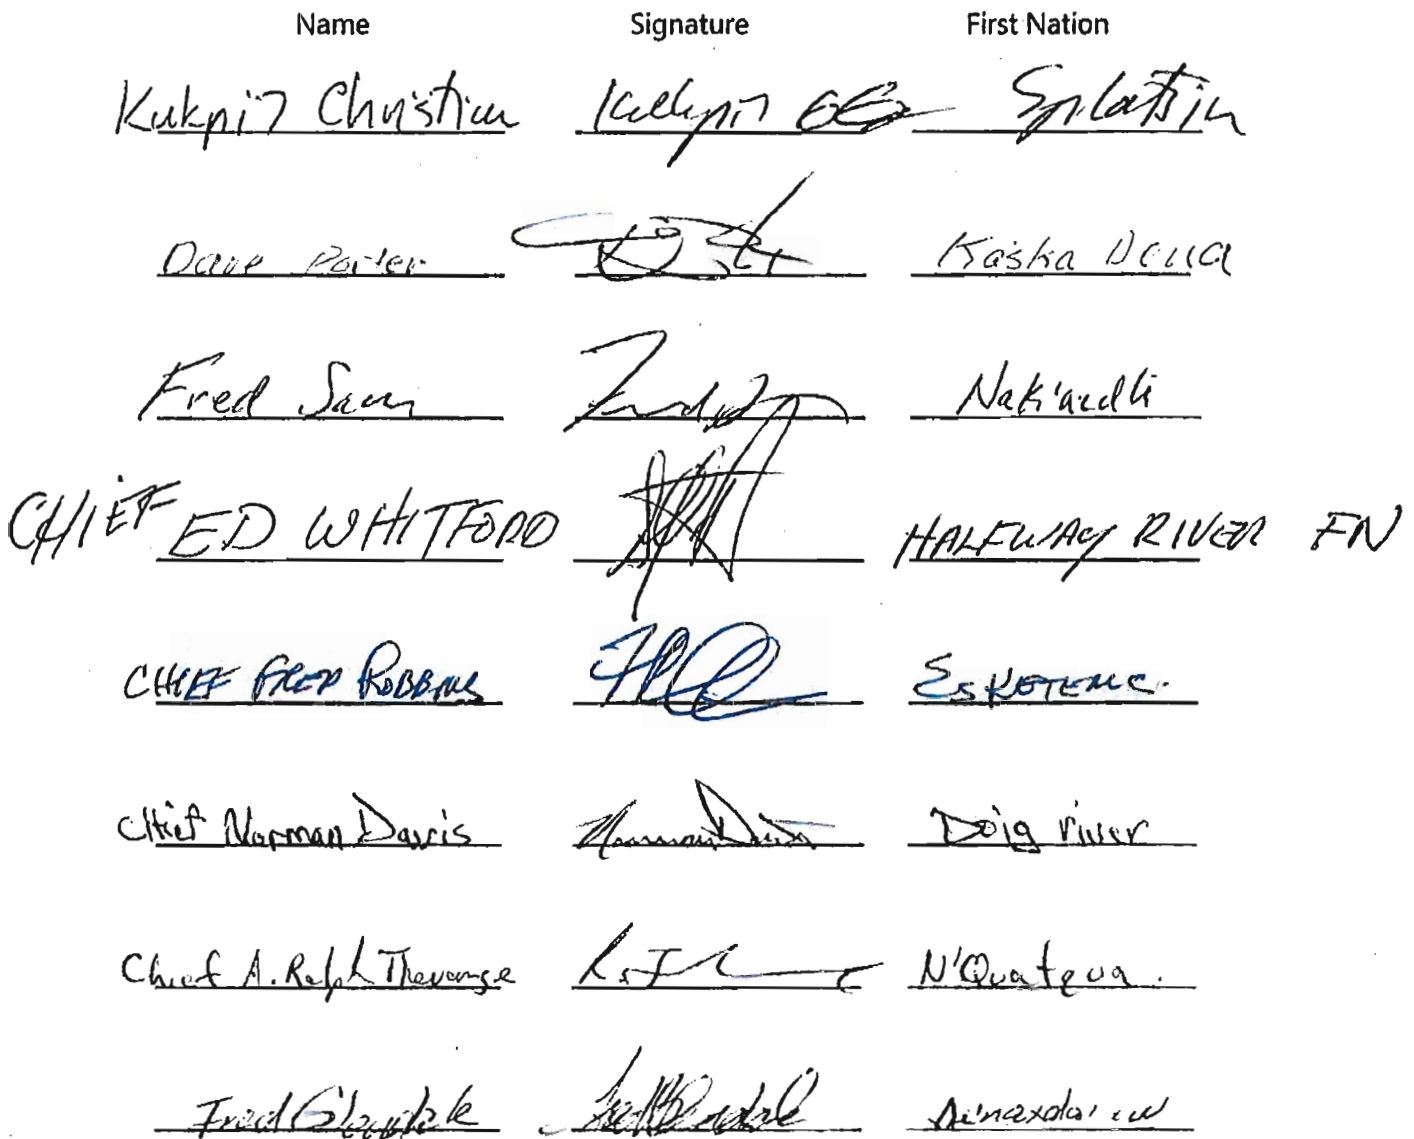 Name Signature First Nation
Kukpi7 Christian Kukpi7 Splatsin
Dave Porter Kaska Dena
Fred Sam Nak'azdli
CHIEF ED WHITFORD HALFWAY RIVER FN
CHIEF FRED ROBBINS ESKETEMC.
Chief Norman Davis Norman Davis Doig river
Chief A. Ralph Thevarge N'Quatqua.
Fred Glendale